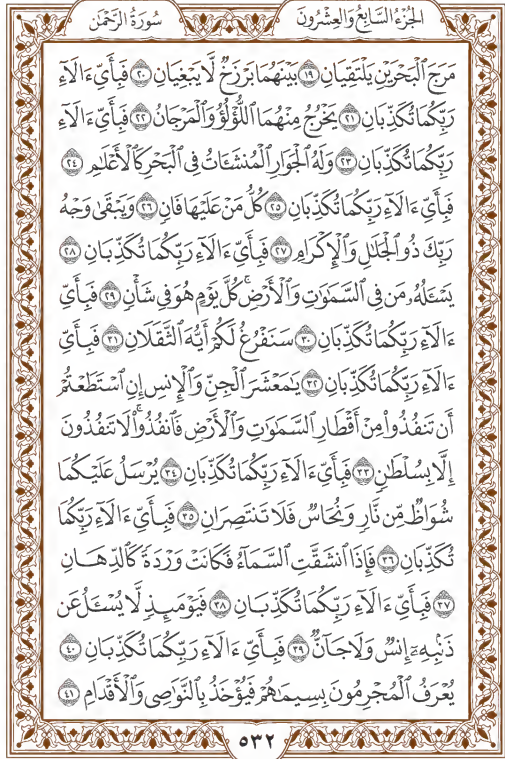 الجُزْءُ السَّابِعُ وَالعِشْرُونَ
سُورَةُ الرَّحْمٰن
مَرَجَ ٱلۡبَحۡرَيۡنِ يَلۡتَقِيَانِ ١٩ بَيۡنَهُمَا بَرۡزَخٞ لَّا يَبۡغِيَانِ ٢٠ فَبِأَيِّ ءَالَآءِ
رَبِّكُمَا تُكَذِّبَانِ ٢١ يَخۡرُجُ مِنۡهُمَا ٱللُّؤۡلُؤُ وَٱلۡمَرۡجَانُ ٢٢ فَبِأَيِّ ءَالَآءِ
رَبِّكُمَا تُكَذِّبَانِ ٢٣ وَلَهُ ٱلۡجَوَارِ ٱلۡمُنشَـَٔاتُ فِي ٱلۡبَحۡرِ كَٱلۡأَعۡلَٰمِ ٢٤
فَبِأَيِّ ءَالَآءِ رَبِّكُمَا تُكَذِّبَانِ ٢٥ كُلُّ مَنۡ عَلَيۡهَا فَانٖ ٢٦ وَيَبۡقَىٰ وَجۡهُ
رَبِّكَ ذُو ٱلۡجَلَٰلِ وَٱلۡإِكۡرَامِ ٢٧ فَبِأَيِّ ءَالَآءِ رَبِّكُمَا تُكَذِّبَانِ ٢٨
يَسۡـَٔلُهُۥ مَن فِي ٱلسَّمَٰوَٰتِ وَٱلۡأَرۡضِۚ كُلَّ يَوۡمٍ هُوَ فِي شَأۡنٖ ٢٩ فَبِأَيِّ
ءَالَآءِ رَبِّكُمَا تُكَذِّبَانِ ٣٠ سَنَفۡرُغُ لَكُمۡ أَيُّهَ ٱلثَّقَلَانِ ٣١ فَبِأَيِّ
ءَالَآءِ رَبِّكُمَا تُكَذِّبَانِ ٣٢ يَٰمَعۡشَرَ ٱلۡجِنِّ وَٱلۡإِنسِ إِنِ ٱسۡتَطَعۡتُمۡ
أَن تَنفُذُواْ مِنۡ أَقۡطَارِ ٱلسَّمَٰوَٰتِ وَٱلۡأَرۡضِ فَٱنفُذُواْۚ لَا تَنفُذُونَ
إِلَّا بِسُلۡطَٰنٖ ٣٣ فَبِأَيِّ ءَالَآءِ رَبِّكُمَا تُكَذِّبَانِ ٣٤ يُرۡسَلُ عَلَيۡكُمَا
شُوَاظٞ مِّن نَّارٖ وَنُحَاسٞ فَلَا تَنتَصِرَانِ ٣٥ فَبِأَيِّ ءَالَآءِ رَبِّكُمَا
تُكَذِّبَانِ ٣٦ فَإِذَا ٱنشَقَّتِ ٱلسَّمَآءُ فَكَانَتۡ وَرۡدَةٗ كَٱلدِّهَانِ
٣٧ فَبِأَيِّ ءَالَآءِ رَبِّكُمَا تُكَذِّبَانِ ٣٨ فَيَوۡمَئِذٖ لَّا يُسۡـَٔلُ عَن
ذَنۢبِهِۦٓ إِنسٞ وَلَا جَآنّٞ ٣٩ فَبِأَيِّ ءَالَآءِ رَبِّكُمَا تُكَذِّبَانِ ٤٠
يُعۡرَفُ ٱلۡمُجۡرِمُونَ بِسِيمَٰهُمۡ فَيُؤۡخَذُ بِٱلنَّوَٰصِي وَٱلۡأَقۡدَامِ ٤١
٥٣٢